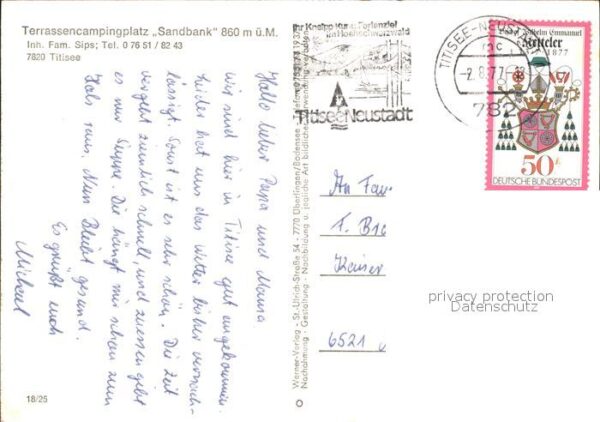 Terrassencampingplatz „Sandbank" 860 m ü.M.
Inh. Fam. Sips; Tel. 0 76 51 / 82 43
7820 Titisee
Hallo lieber Papa und Mama
wir sind hier in Titisee gut angekommen.
Leider hat uns das Wetter bisher vernach-
lässigt. Sonst ist es sehr schön. Die Zeit
vergeht ziemlich schnell und zuessen gibt
es nur Suppe. Die hängt mir schon zum
Hals raus. Nun Bleibt gesund.
Es grüßt euch
Michael
18/25
Werner-Verlag - St.-Ulrich-Straße 54 - 7770 Überlingen/Bodensee
Nachahmung - Gestaltung - Nachbildung u. jegliche Art bildlicher
Ihr Kneipp Kur u. Ferienziel
im Hochschwarzwald
Titisee Neustadt
TITISEE-NEUSTADT
mc
-2.8.77
782
Wilhelm Emmanuel
Ketteler
1877
50
DEUTSCHE BUNDESPOST
An Fam.
T. Bro
Kaiser
6521
privacy protection
Datenschutz